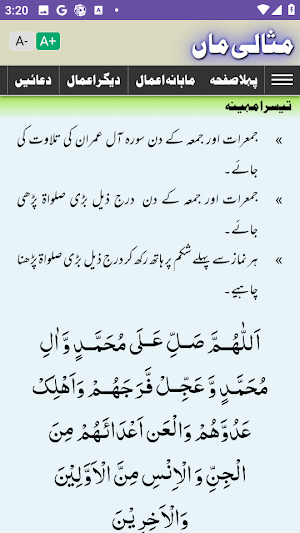 3:20
A- A+ مثالی ماں
پہلا صفحہ ماہانہ اعمال دیگر اعمال دعائیں
تیسرا مہینہ
» جمعرات اور جمعہ کے دن سورہ آل عمران کی تلاوت کی
جائے۔
» جمعرات اور جمعہ کے دن درج ذیل بڑی صلواۃ پڑھی
جائے۔
» ہر نماز سے پہلے شکم پر ہاتھ رکھ کر درج ذیل بڑی صلواۃ پڑھنا
چاہیے۔
اَللّٰهُمَّ صَلِّ عَلَى مُحَمَّدٍ وَّاٰلِ
مُحَمَّدٍ وَّعَجِّلْ فَرَجَهُمْ وَاَهْلِکْ
عَدُوَّهُمْ وَالْعَنْ اَعْدَائَهُمْ مِنَ
الْجِنِّ وَالْاِنْسِ مِنَ الْاَوَّلِیْنَ
وَالْاٰخِرِیْنَ